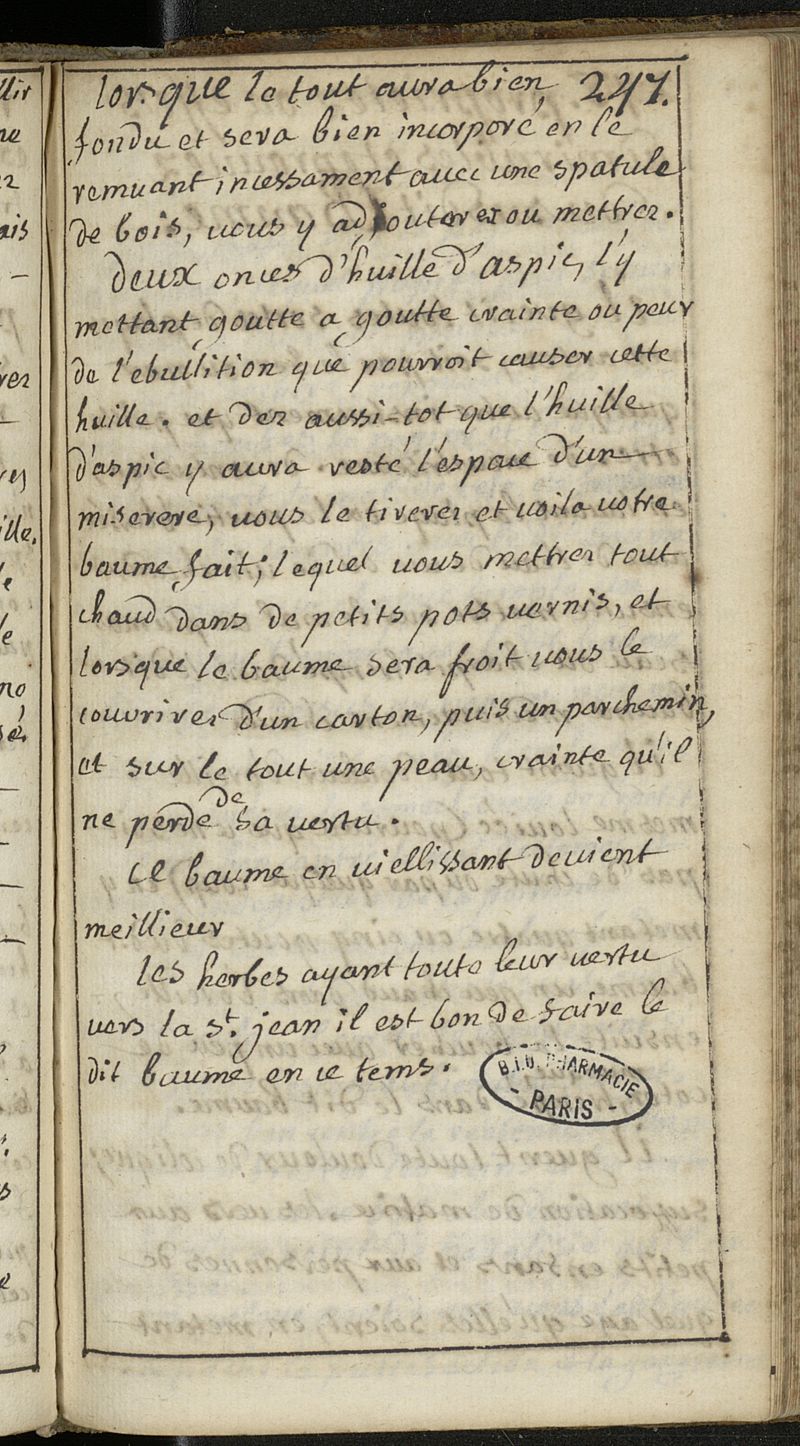 lorsque le tout aura bien, 247.
fondu et sera bien incorporé en le
remuant incessament avec une spatule
de bois, vous y adjouterez ou mettrez.
deux onces d'huille d'aspic, l'y
mettant goutte a goutte crainte ou peur
de l'ebullition que pourroit causer cette
huille. et dez aussi-tot que l'huille
d'aspic y aura resté l'espace d'un
miserere, vous le tirerez et voila votre
baume fait; lequel vous mettrez tout
chaud dans de petits pots vernis, et
lorsque le baume sera froit vous le
couvrirez d'un carton, puis un parchemin,
et sur le tout une peau, crainte qu'il
ne perde de sa vertu.
ce baume en viellissant devient
meillieur
les herbes ayant toute leur vertu
vers la st. jean il est bon de faire le
dit baume en ce tems.
B.I.U. PHARMACIE
- PARIS -